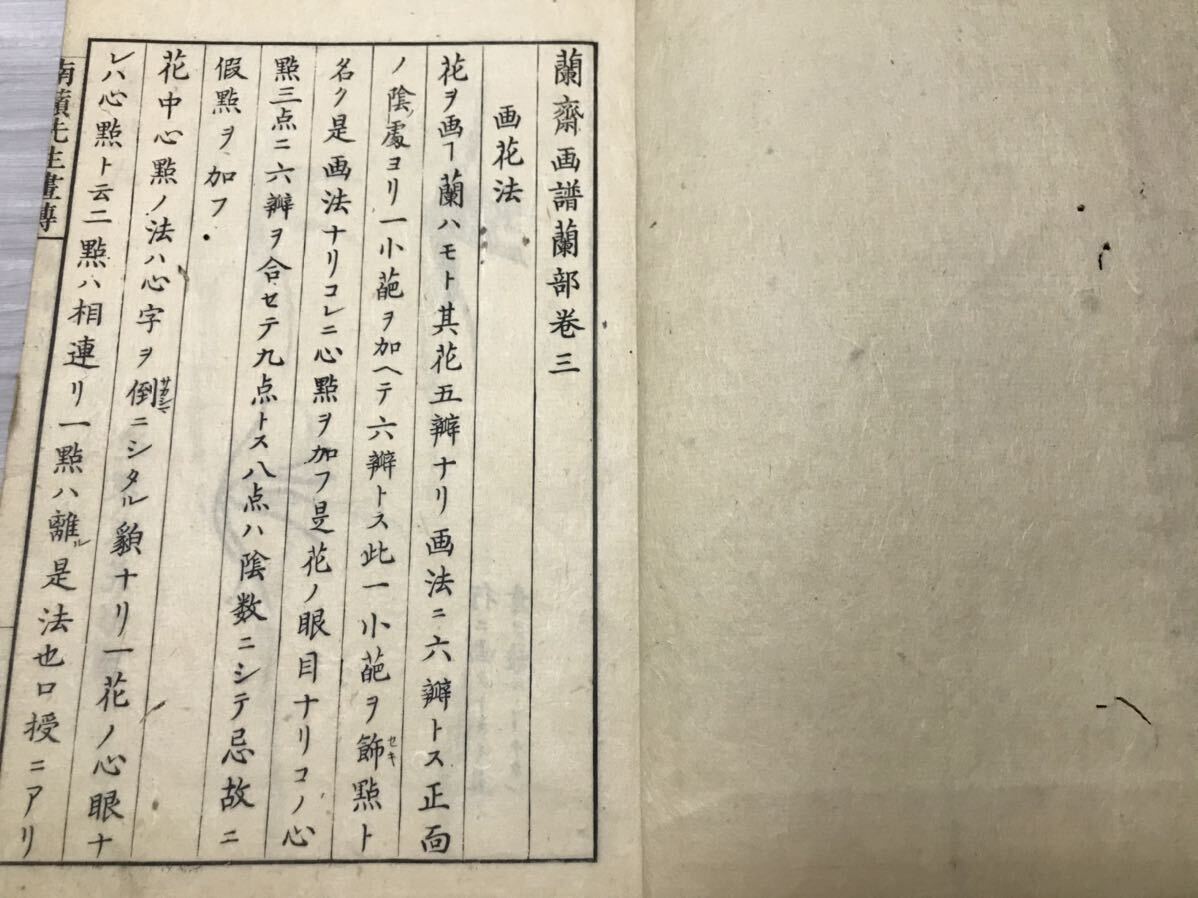 蘭齋画譜蘭部巻三
画花法
花ヲ画ヿ蘭ハモト其花五瓣ナリ画法ニ六瓣トス正面
ノ陰䖏ヨリ一小葩ヲ加ヘテ六瓣トス此一小葩ヲ飾セキ點ト
名ク是画法ナリコレニ心點ヲ加フ是花ノ眼目ナリコノ心
點三点ニ六瓣ヲ合セテ九点トス八点ハ陰数ニシテ忌故ニ
假點ヲ加フ
花中心點ノ法ハ心字ヲ倒サカシマニシタル貌ナリ一花ノ心眼ナ
レハ心點ト云二點ハ相連リ一點ハ離ル是法也口授ニアリ
先生畫傳